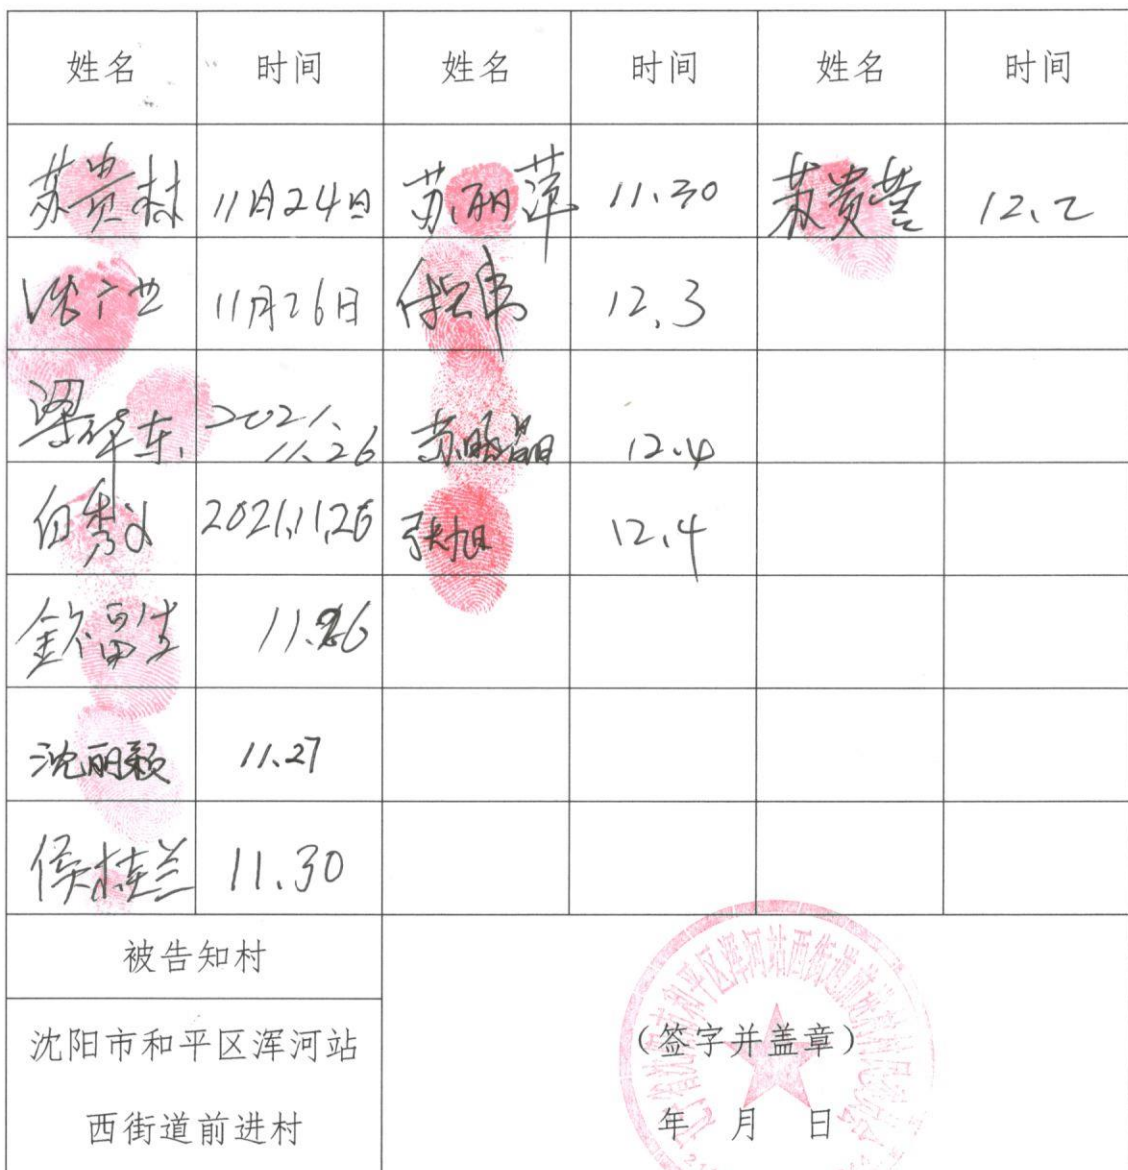 姓名 时间 姓名 时间 姓名 时间
苏贵村 11月24日 苏丽萍 11.30 苏贵 12.2
11月26日 12.3
梁华东 2021.11.26 苏明晶 12.4
白秀 2021.11.26 张旭 12.4
留生 11.26
沈丽颖 11.27
侯桂兰 11.30
被告知村
沈阳市和平区浑河站
西街道前进村
(签字并盖章)
年 月 日